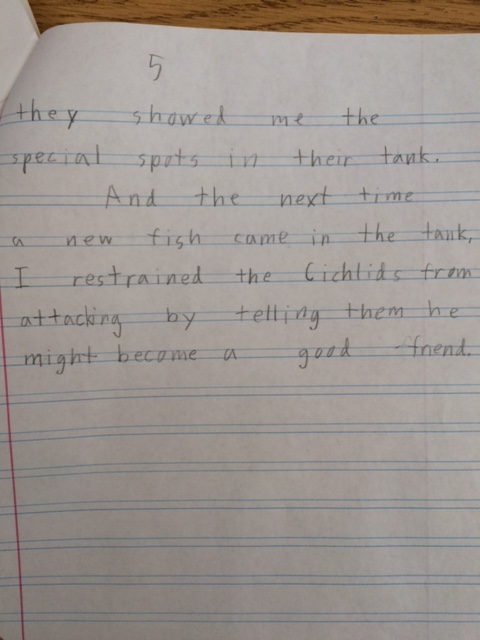 5
they showed me the
special spots in their tank.
And the next time
a new fish came in the tank,
I restrained the Cichlids from
attacking by telling them he
might become a good friend.